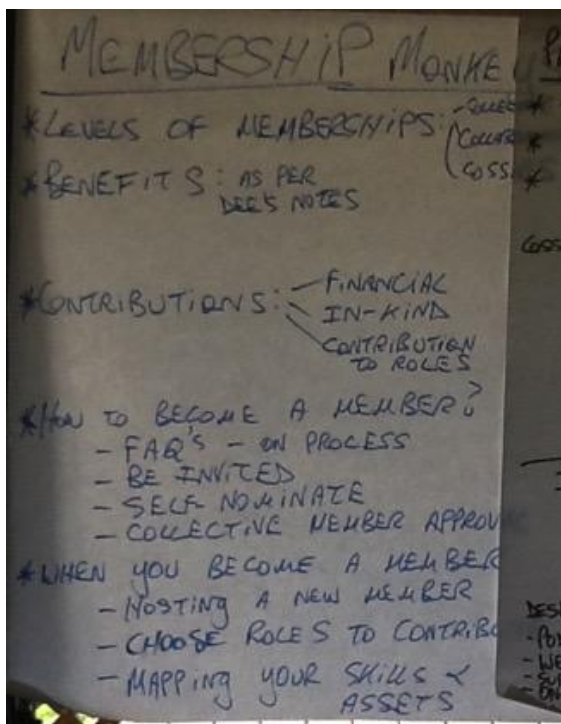 MEMBERSHIP MONKE
*LEVELS OF MEMBERSHIPS:
*BENEFITS: AS PER
DEE'S NOTES
*CONTRIBUTIONS: - FINANCIAL
- IN-KIND
- CONTRIBUTION
TO ROLES
*HOW TO BECOME A MEMBER?
- FAQ'S - ON PROCESS
- BE INVITED
- SELF NOMINATE
- COLLECTIVE MEMBER APPROV
*WHEN YOU BECOME A MEMBER
- HOSTING A NEW MEMBER
- CHOOSE ROLES TO CONTRIBU
- MAPPING YOUR SKILLS &
ASSETS